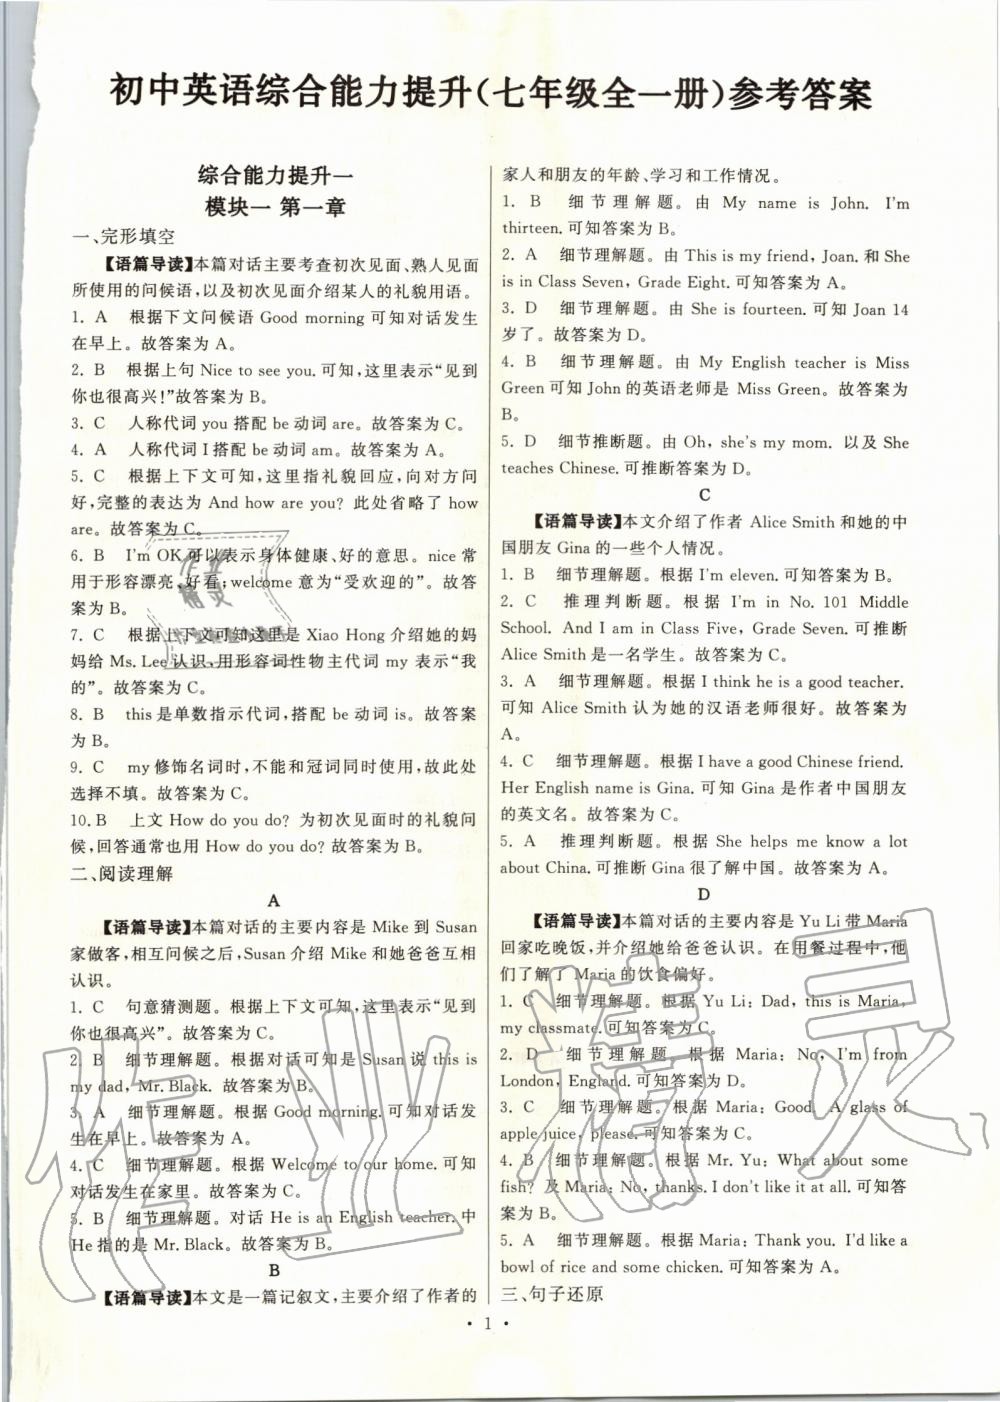 初中英语综合能力提升(七年级全一册)参考答案
综合能力提升一
模块一 第一章
一、完形填空
【语篇导读】本篇对话主要考查初次见面、熟人见面
所使用的问候语,以及初次见面介绍某人的礼貌用语。
1. A 根据下文问候语 Good morning 可知对话发生
在早上。故答案为 A。
2. B 根据上句 Nice to see you. 可知,这里表示“见到
你也很高兴!”故答案为 B。
3. C 人称代词 you 搭配 be 动词 are。故答案为 C。
4. A 人称代词 I 搭配 be 动词 am。故答案为 A。
5. C 根据上下文可知,这里指礼貌回应,向对方问
好,完整的表达为 And how are you? 此处省略了 how
are。故答案为 C。
6. B I'm OK 可以表示身体健康、好的意思。nice 常
用于形容漂亮、好看;welcome 意为“受欢迎的”。故答
案为 B。
7. C 根据上下文可知这里是 Xiao Hong 介绍她的妈
妈给 Ms. Lee 认识,用形容词性物主代词 my 表示“我
的”。故答案为 C。
8. B this 是单数指示代词,搭配 be 动词 is。故答案
为 B。
9. C my 修饰名词时,不能和冠词同时使用,故此处
选择不填。故答案为 C。
10. B 上文 How do you do? 为初次见面时的礼貌问
候,回答通常也用 How do you do? 故答案为 B。
二、阅读理解
A
【语篇导读】本篇对话的主要内容是 Mike 到 Susan
家做客,相互问候之后,Susan 介绍 Mike 和她爸爸互相
认识。
1. C 句意猜测题。根据上下文可知,这里表示“见到
你也很高兴”。故答案为 C。
2. B 细节理解题。根据对话可知是 Susan 说 this is
my dad, Mr. Black. 故答案为 B。
3. A 细节理解题。根据 Good morning. 可知对话发
生在早上。故答案为 A。
4. C 细节理解题。根据 Welcome to our home. 可知
对话发生在家里。故答案为 C。
5. B 细节理解题。对话 He is an English teacher. 中
He 指的是 Mr. Black。故答案为 B。
B
【语篇导读】本文是一篇记叙文,主要介绍了作者的
家人和朋友的年龄、学习和工作情况。
1. B 细节理解题。由 My name is John. I'm
thirteen. 可知答案为 B。
2. A 细节理解题。由 This is my friend, Joan. 和 She
is in Class Seven, Grade Eight. 可知答案为 A。
3. D 细节理解题。由 She is fourteen. 可知 Joan 14
岁了。故答案为 D。
4. B 细节理解题。由 My English teacher is Miss
Green 可知 John 的英语老师是 Miss Green。故答案为
B。
5. D 细节推断题。由 Oh, she's my mom. 以及 She
teaches Chinese. 可推断答案为 D。
C
【语篇导读】本文介绍了作者 Alice Smith 和她的中
国朋友 Gina 的一些个人情况。
1. B 细节理解题。根据 I'm eleven. 可知答案为 B。
2. C 推理判断题。根据 I'm in No. 101 Middle
School. And I am in Class Five, Grade Seven. 可推断
Alice Smith 是一名学生。故答案为 C。
3. A 细节理解题。根据 I think he is a good teacher.
可知 Alice Smith 认为她的汉语老师很好。故答案为
A。
4. C 细节理解题。根据 I have a good Chinese friend.
Her English name is Gina. 可知 Gina 是作者中国朋友
的英文名。故答案为 C。
5. A 推理判断题。根据 She helps me know a lot
about China. 可推断 Gina 很了解中国。故答案为 A。
D
【语篇导读】本篇对话的主要内容是 Yu Li 带 Maria
回家吃晚饭,并介绍她给爸爸认识。在用餐过程中,他
们了解了 Maria 的饮食偏好。
1. C 细节理解题。根据 Yu Li: Dad, this is Maria,
my classmate. 可知答案为 C。
2. D 细节理解题。根据 Maria: No, I'm from
London, England. 可知答案为 D。
3. C 细节理解题。根据 Maria: Good. A glass of
apple juice, please. 可知答案为 C。
4. B 细节理解题。根据 Mr. Yu: What about some
fish? 及 Maria: No, thanks. I don't like it at all. 可知答
案为 B。
5. A 细节理解题。根据 Maria: Thank you. I'd like a
bowl of rice and some chicken. 可知答案为 A。
三、句子还原
• 1 •
作业精灵
作业
精灵